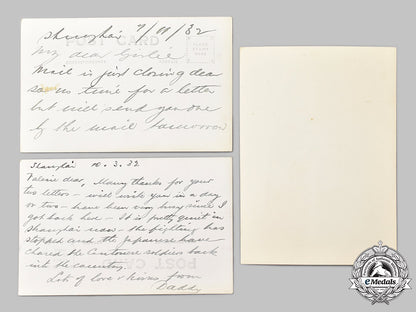 Shanghai 7/11/32
POST CARD
My dear Girlie
Mail is just closing dear
so no time for a letter
but will send you one
by the mail tomorrow
Shanghai 10.3.32
Valerie dear, Many thanks for your
two letters - will write you in a day
or two - have been very busy since I
got back here - It is pretty quiet in
Shanghai now - the fighting has
stopped and the Japanese have
chased the Cantonese soldiers back
into the country.
POST CARD
Lots of love & kisses from
Daddy
eMedals